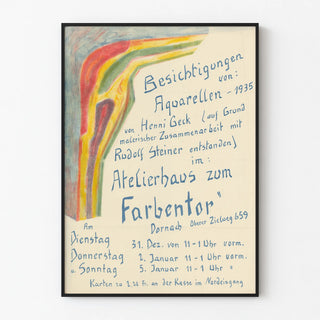 Besichtigungen
von:
Aquarellen - 1935
von Henni Geck (auf Grund
malerischer Zusammenarbeit mit
Rudolf Steiner entstanden)
im:
Atelierhaus zum
Farbentor"
Dornach Oberer Zielweg 659
Am
Dienstag 31. Dez. von 11-1 Uhr vorm.
Donnerstag 2. Januar 11-1 Uhr vorm.
u. Sonntag 5. Januar 11-1 Uhr "
Karten zu fr. an der Kasse im Nordeingang